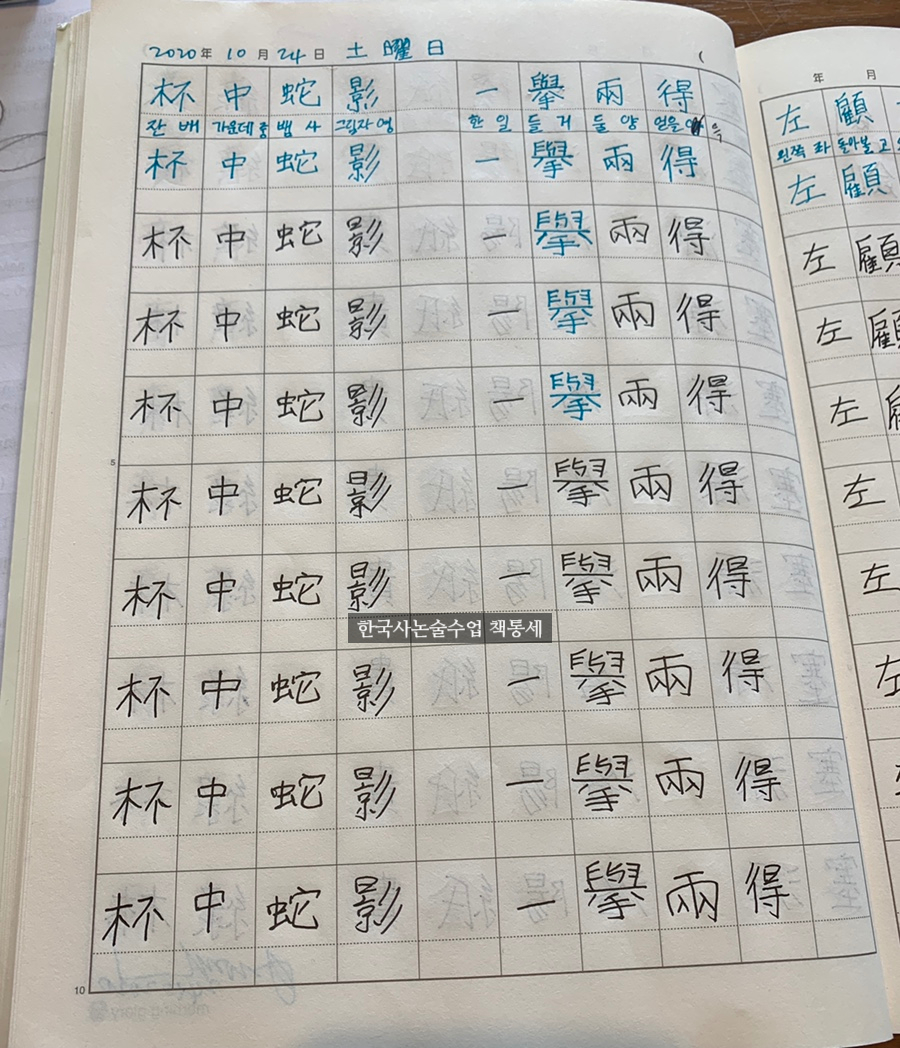 2020年 10月 24日 土曜日 (
杯 中 蛇 影 一 擧 兩 得
잔 배 가운데 중 뱀 사 그림자 영 한 일 들 거 둘 양 얻을 득
杯 中 蛇 影 一 擧 兩 得
杯 中 蛇 影 一 擧 兩 得
杯 中 蛇 影 一 擧 兩 得
杯 中 蛇 影 一 擧 兩 得
5
杯 中 蛇 影 一 擧 兩 得
杯 中 蛇 影 一 擧 兩 得
한국사논술수업 책통세
杯 中 蛇 影 一 擧 兩 得
杯 中 蛇 影 一 擧 兩 得
杯 中 蛇 影 一 擧 兩 得
10
年 月
左 顧
왼쪽 좌 돌아볼 고
左 顧
左 顧
左 顧
左
左
左
左